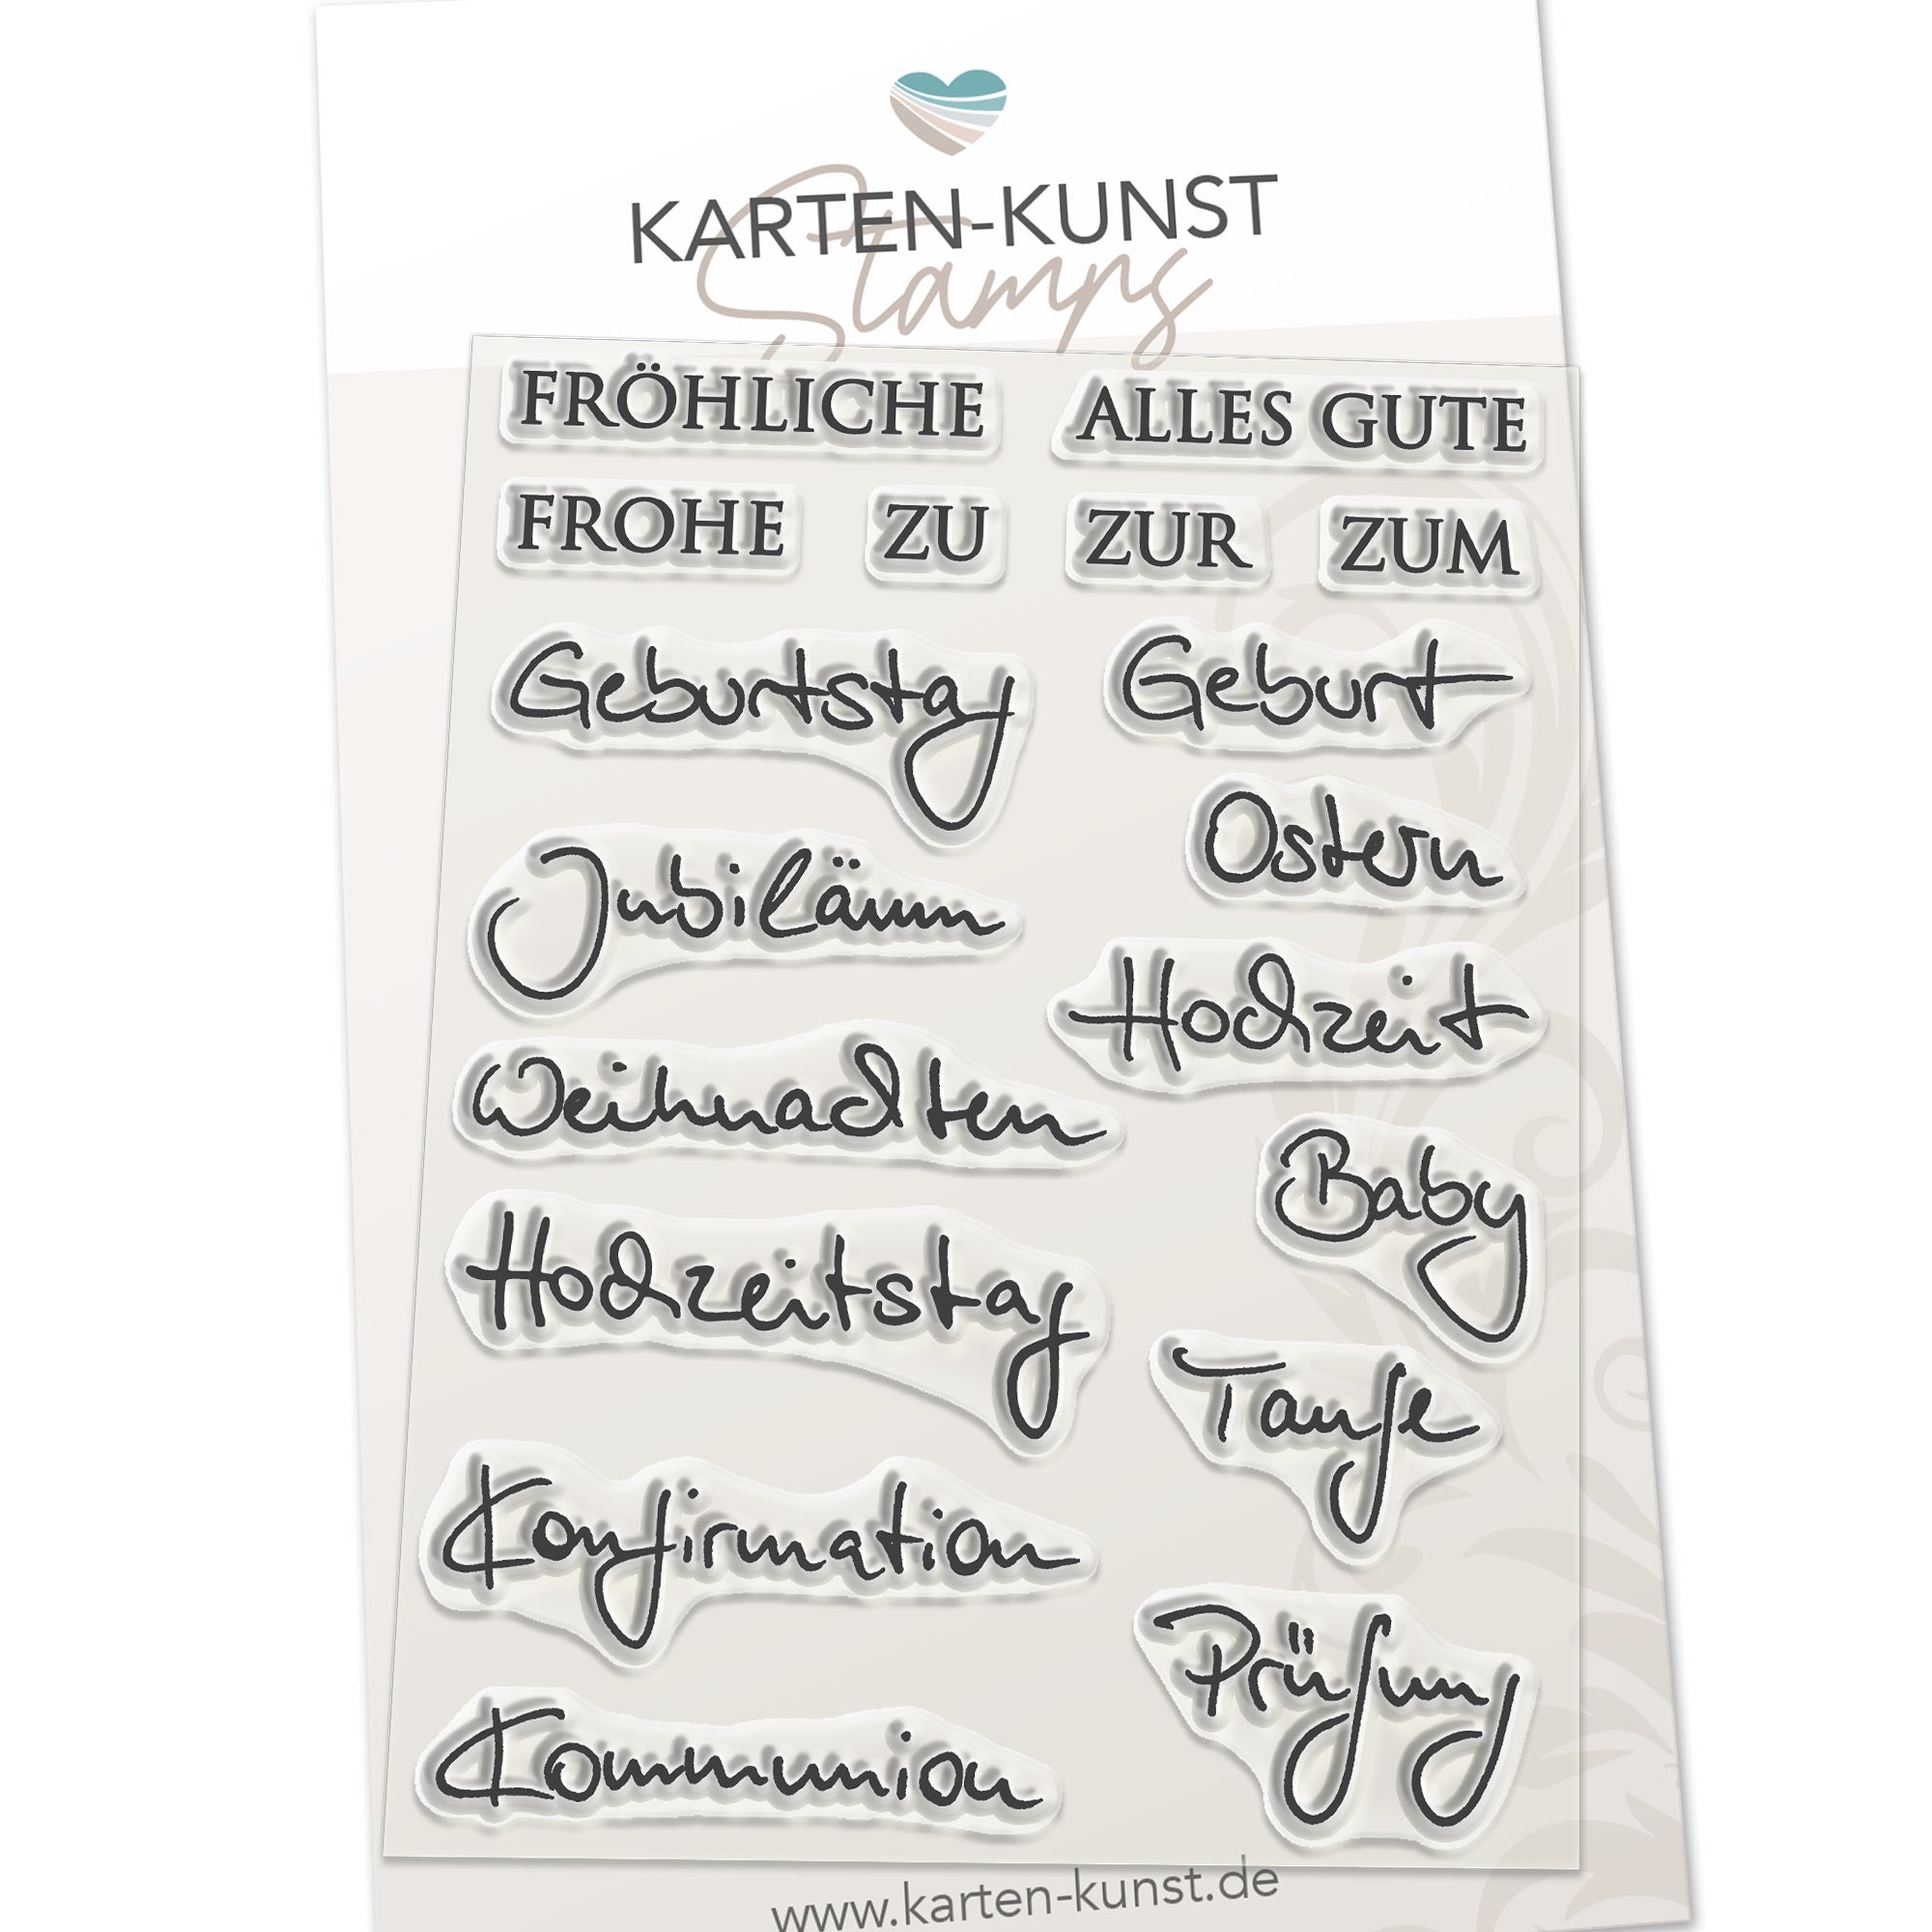 KARTEN-KUNST
Stamps
FRÖHLICHE
ALLES GUTE
FROHE
ZU
ZUR
ZUM
Geburtstag
Geburt
Ostern
Jubiläum
Hochzeit
Weihnachten
Baby
Hochzeitstag
Taufe
Konfirmation
Prüfung
Kommunion
www.karten-kunst.de